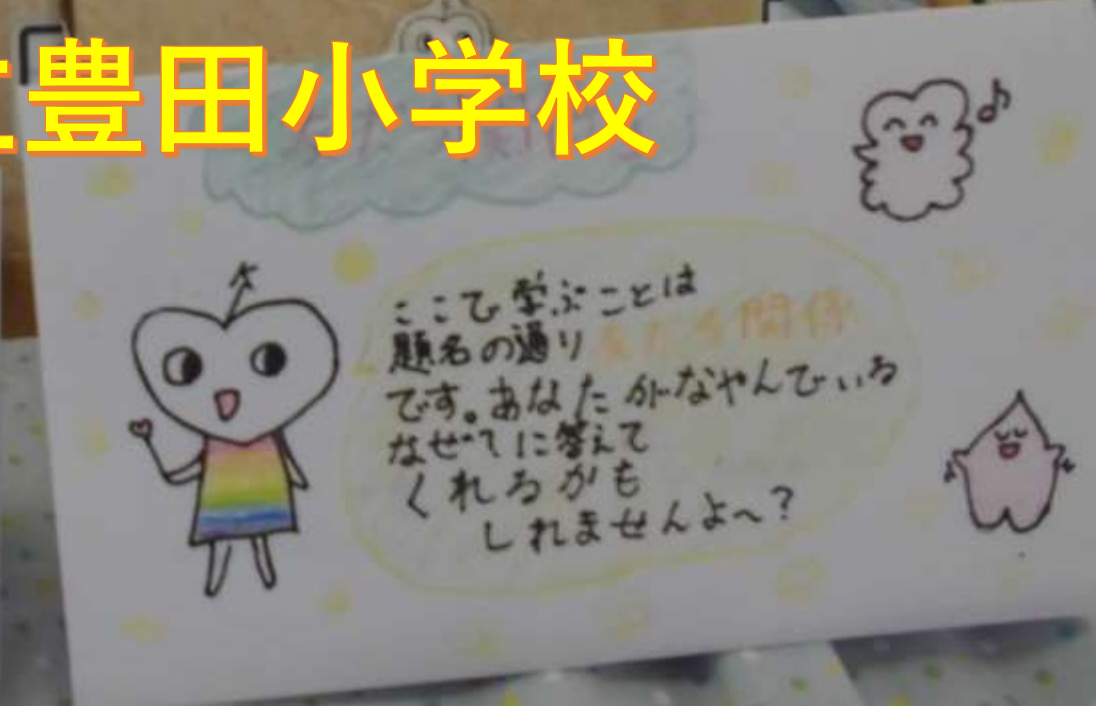 立豊田小学校
ここで学ぶことは
題名の通り 友だち関係
です。あなたがなやんでいる
なぜ?に答えて
くれるかも
しれませんよ〜?